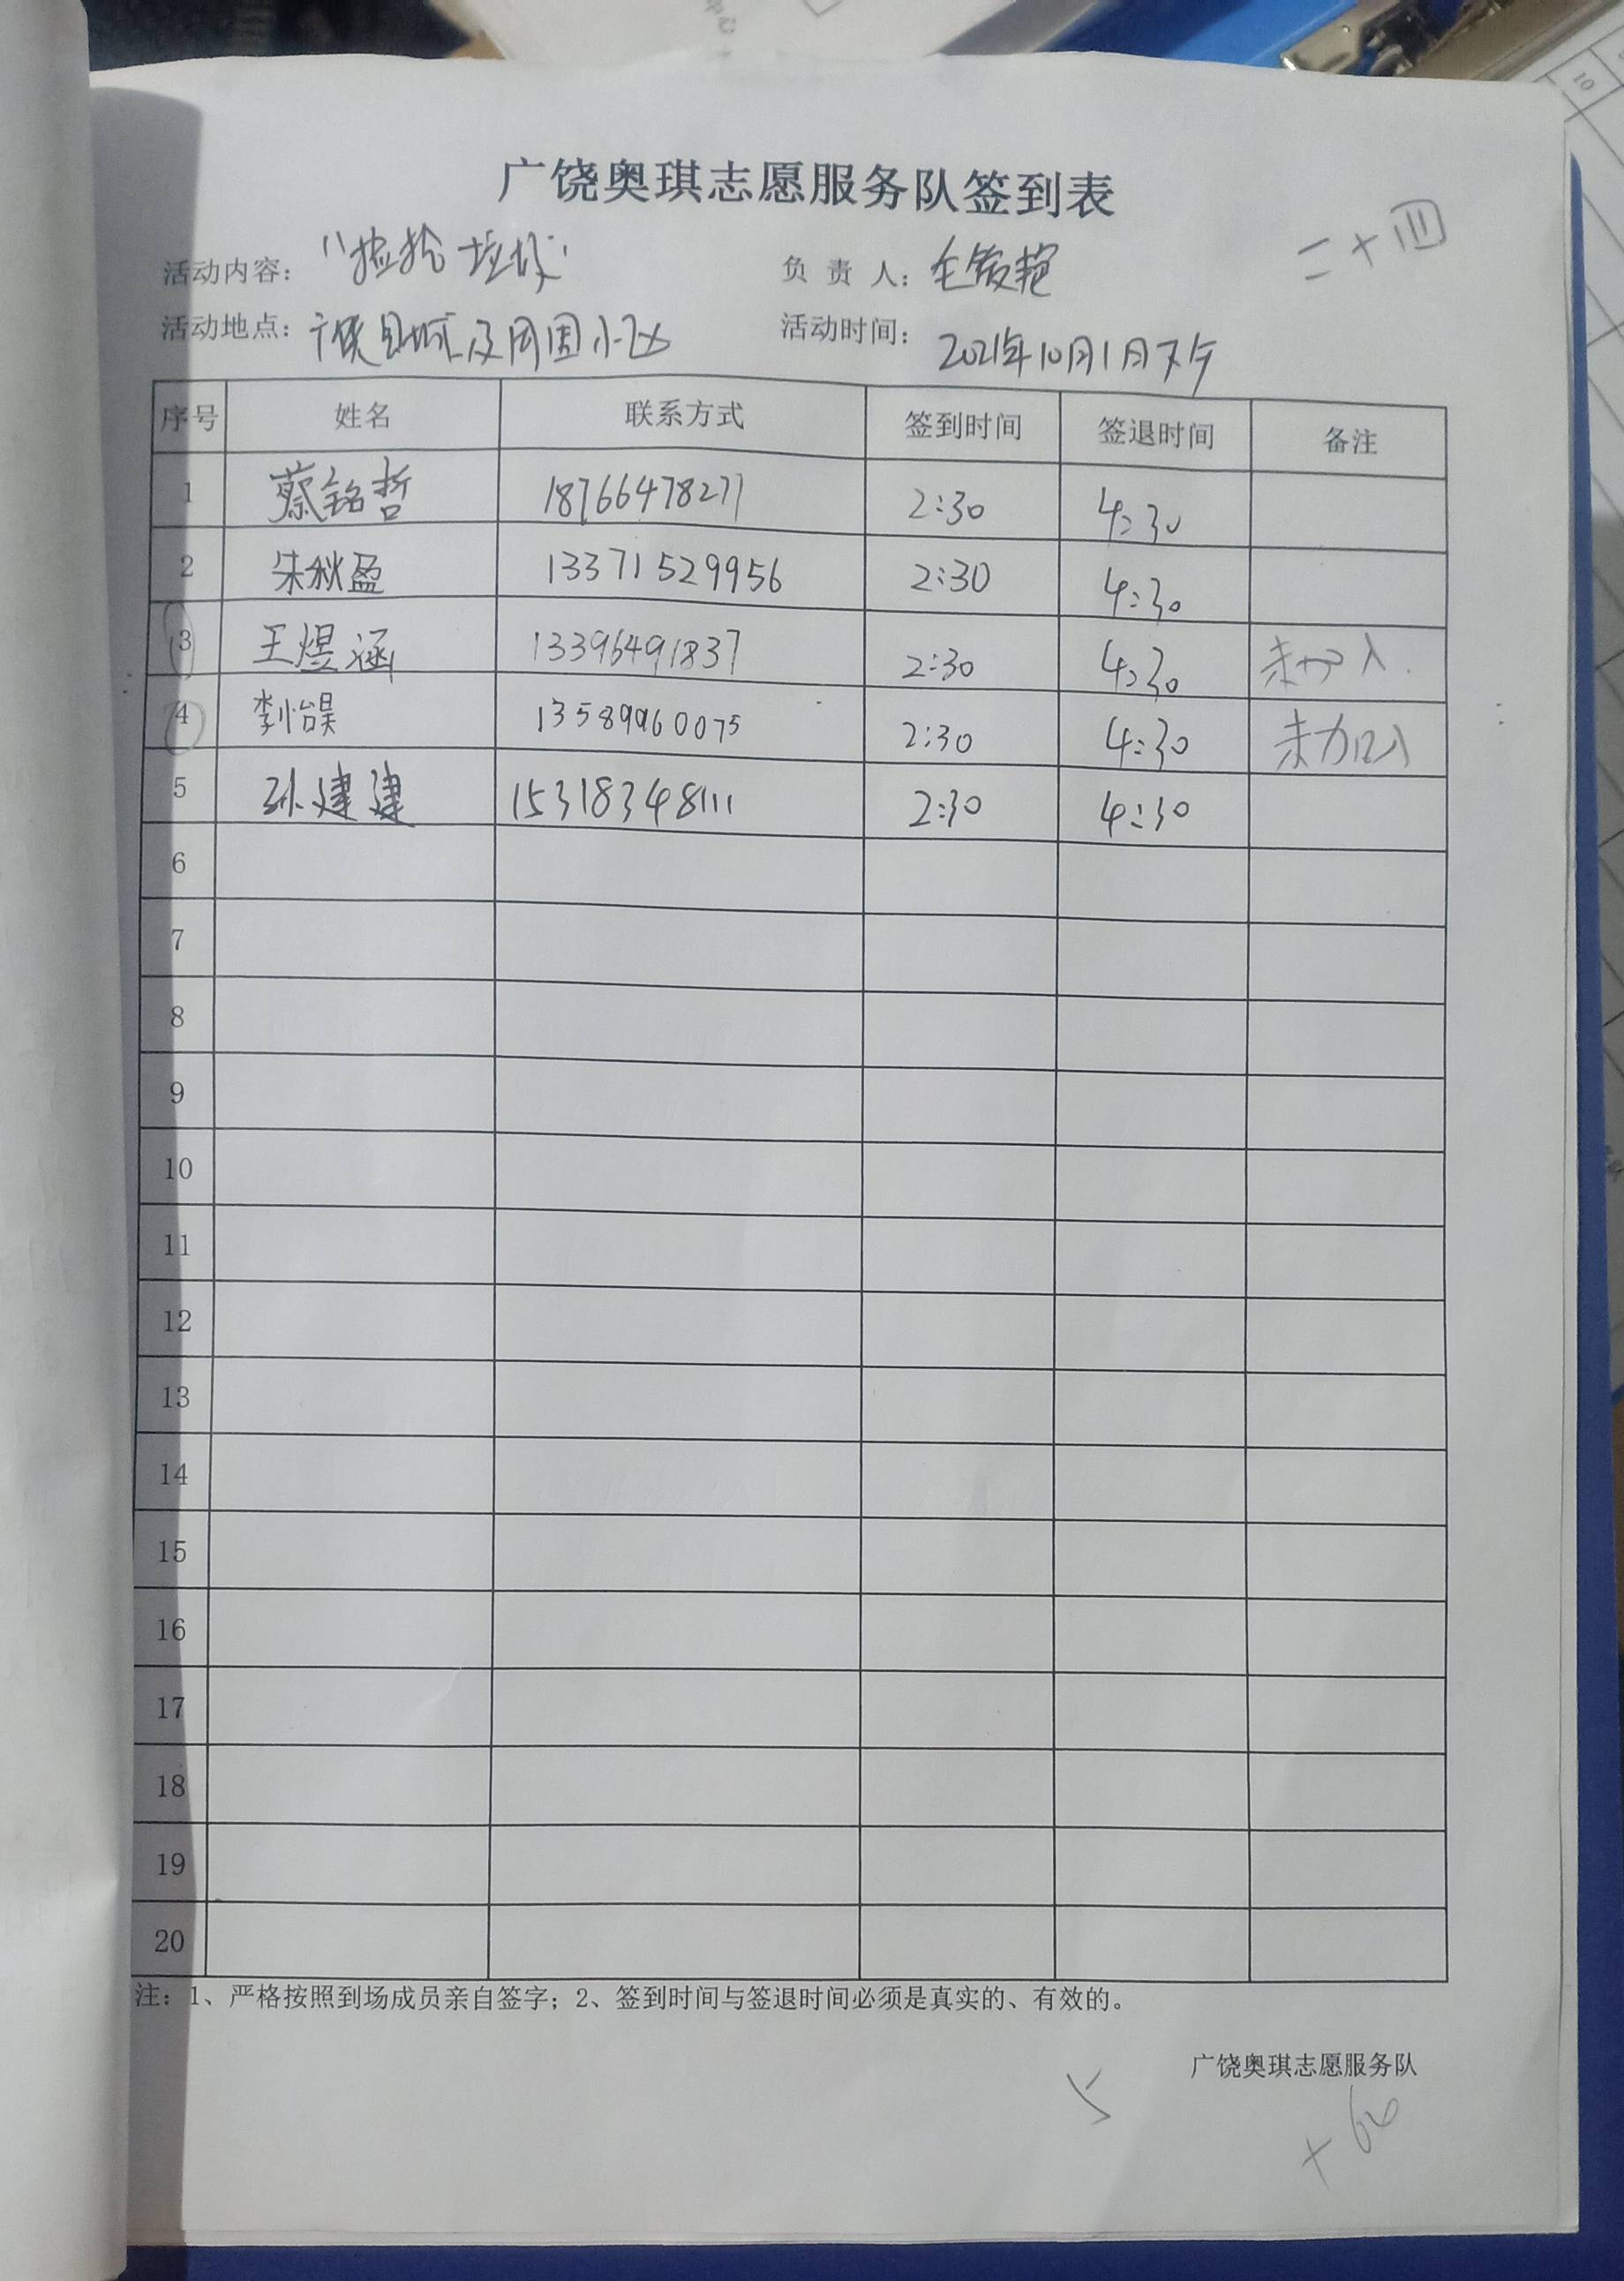 广饶奥琪志愿服务队签到表
二十四
活动内容: "捡拾垃圾" 负责人:
活动地点: 广饶县城及周围小区 活动时间: 2021年10月1月下午
序号 姓名 联系方式 签到时间 签退时间 备注
1 蔡铭哲 18766478271 2:30 4:30
2 朱秋盈 13371529956 2:30 4:30
3 王煜涵 13396491837 2:30 4:30 未加入
4 李怡昊 13589960075 2:30 4:30 未加入
5 孙建建 15318348111 2:30 4:30
6
7
8
9
10
11
12
13
14
15
16
17
18
19
20
注: 1、严格按照到场成员亲自签字; 2、签到时间与签退时间必须是真实的、有效的。
广饶奥琪志愿服务队
5